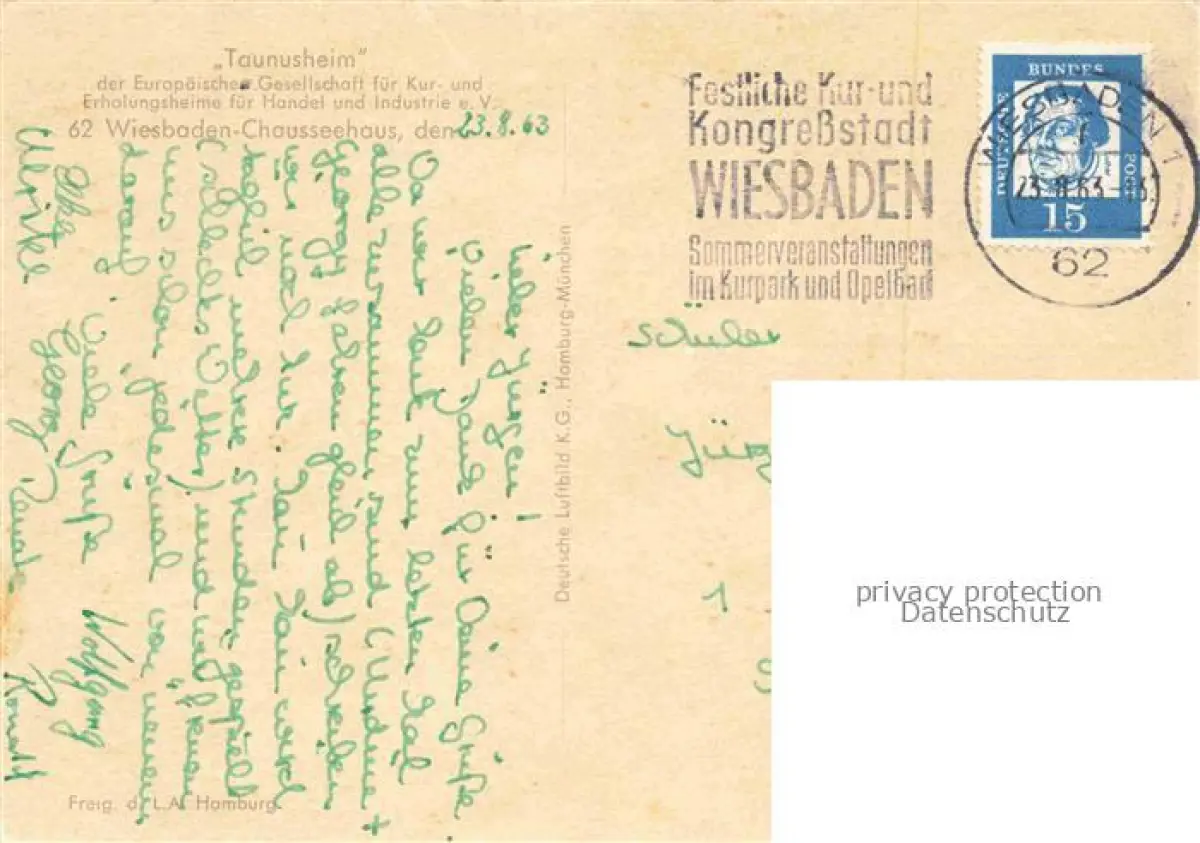 „Taunusheim"
der Europäischen Gesellschaft für Kur- und
Erholungsheime für Handel und Industrie e. V.
62 Wiesbaden-Chausseehaus, den 23.8.63
Lieber Jürgen!
Vielen Dank für Deine Grüße.
Da wir heut zum letzten Mal
alle zusammen sind (Undine +
Georg fahren gleich ab) schreiben
wir noch kurz.
täglich mehrere Stunden gespielt
(schlechtes Wetter) und wir freuen
uns schon jedesmal von neuem
darauf. Viele Grüße Wolfgang
Elke Georg Renate Ronald
Ulrike
Freig. d. L.A. Hamburg
Deutsche Luftbild K.G., Hamburg-München
Festliche Kur- und
Kongreßstadt
WIESBADEN
Sommerveranstaltungen
im Kurpark und Opelbad
DEUTSCHE
BUNDES
POST
15
WIESBADEN 1
23.8.63
62
Schüler
Jürg
1
privacy protection
Datenschutz